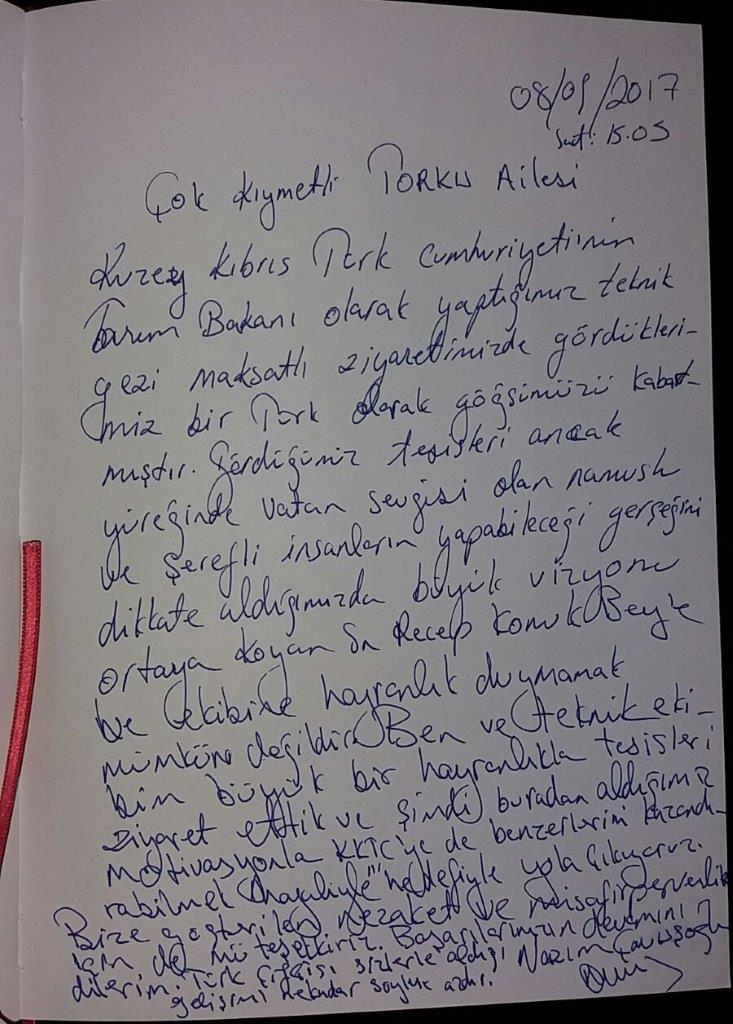 08/09/2017
Saat: 15.05
Çok Kıymetli TORKU Ailesi
Kuzey Kıbrıs Türk Cumhuriyetinin
Tarım Bakanı olarak yaptığımız teknik
gezi maksatlı ziyaretimizde gördükleri-
miz bir Türk olarak göğsümüzü kabart-
mıştır. Gördüğümüz tesisleri ancak
yüreğinde vatan sevgisi olan namuslu
ve şerefli insanların yapabileceği gerçeğini
dikkate aldığımızda büyük vizyonu
ortaya koyan Sn Recep Konuk Bey'e
ve ekibine hayranlık duymamak
mümkün değildir. Ben ve teknik eki-
bim büyük bir hayranlıkla tesisleri
ziyaret ettik ve şimdi buradan aldığımız
motivasyonla KKTC'ye de benzerlerini kazandı-
rabilmek hayaliyle hedefiyle yola çıkıyoruz.
Bize gösterilen nezaket ve misafirperverlik
için de müteşekkiriz. Başarılarınızın devamını
dilerim. Türk çiftçisi sizlerle aldığı
gelişimi nekadar söylük azdır.
Nazım Çavuşoğlu